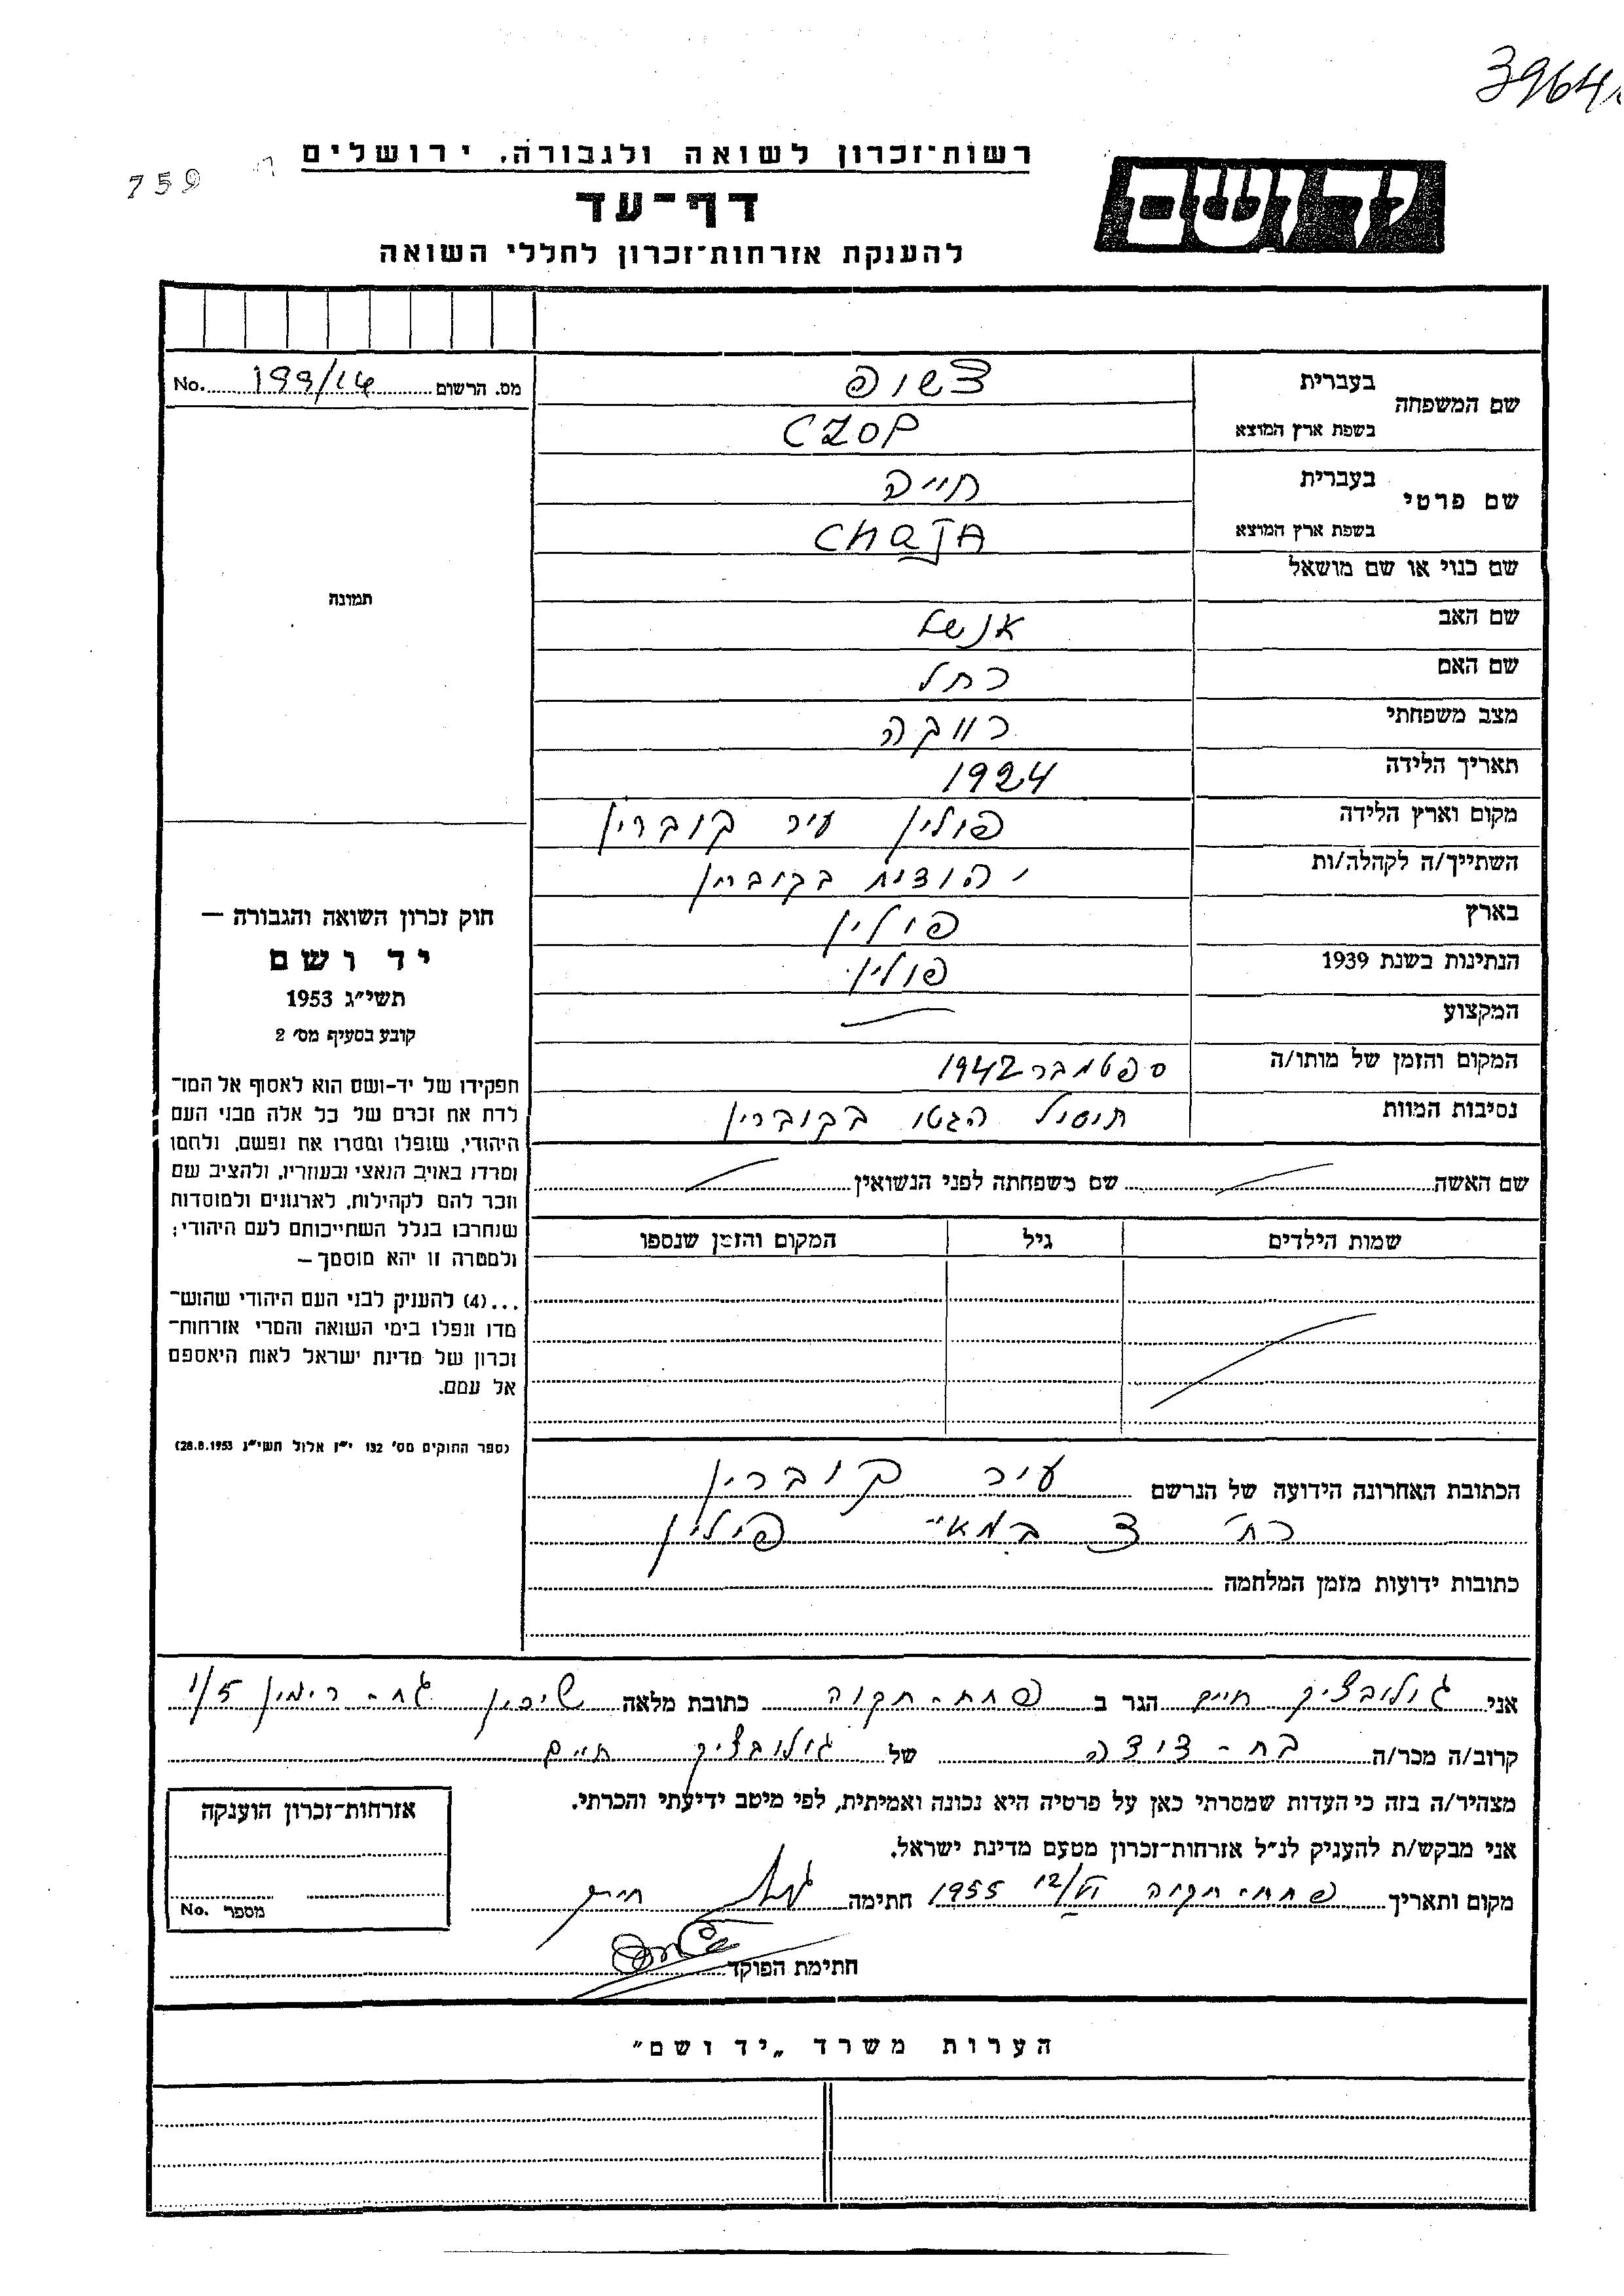 3964
759
רשות־זכרון לשואה ולגבורה, ירושלים
יד ושם
דף־עד
להענקת אזרחות־זכרון לחללי השואה
מס. הרשום 199/14 No.
שם המשפחה
בעברית צשופ
בשפת ארץ המוצא CZOP
שם פרטי
בעברית חייה
בשפת ארץ המוצא CHAJA
שם כנוי או שם מושאל
שם האב אנשל
שם האם רחל
מצב משפחתי רווקה
תאריך הלידה 1924
מקום וארץ הלידה פולין עיר קוברין
השתייך/ה לקהלה/ות יהודית בקוברין
בארץ פולין
הנתינות בשנת 1939 פולין
המקצוע
המקום והזמן של מותו/ה ספטמבר 1942
נסיבות המוות חוסול הגטו בקוברין
תמונה
חוק זכרון השואה והגבורה —
יד ושם
תשי״ג 1953
קובע בסעיף מס׳ 2
תפקידו של יד-ושם הוא לאסוף אל המו־
לדת את זכרם של כל אלה מבני העם
היהודי, שנפלו ומסרו את נפשם, נלחמו
ומרדו באויב הנאצי ובעוזריו, ולהציב שם
וזכר להם לקהילות, לארגונים ולמוסדות
שנחרבו בגלל השתייכותם לעם היהודי;
ולמטרה זו יהא מוסמך —
...(4) להעניק לבני העם היהודי שהוש־
מדו ונפלו בימי השואה והמרי אזרחות־
זכרון של מדינת ישראל לאות היאספם
אל עמם.
(ספר החוקים מס׳ 132 י״ז אלול תשי״ג 28.8.1953)
שם האשה שם משפחתה לפני הנשואין
שמות הילדים גיל המקום והזמן שנספו
הכתובת האחרונה הידועה של הנרשם עיר קוברין
רח׳ 3 במאי פולין
כתובות ידועות מזמן המלחמה
אני גולובציק חיים הגר ב פתח-תקוה כתובת מלאה שיכון גת-רימון 1/5
קרוב/ה מכר/ה בת-דודה של גולובציק חיים
מצהיר/ה בזה כי העדות שמסרתי כאן על פרטיה היא נכונה ואמיתית, לפי מיטב ידיעתי והכרתי.
אני מבקש/ת להעניק לנ״ל אזרחות־זכרון מטעם מדינת ישראל.
מקום ותאריך פתח-תקוה 12/VI 1955 חתימה
חתימת הפוקד
אזרחות־זכרון הוענקה
מספר No.
הערות משרד „יד ושם״